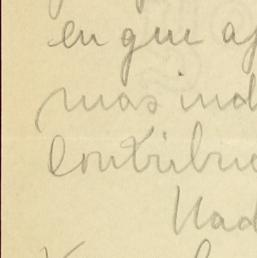 en que
mas ind
contribu
Nad